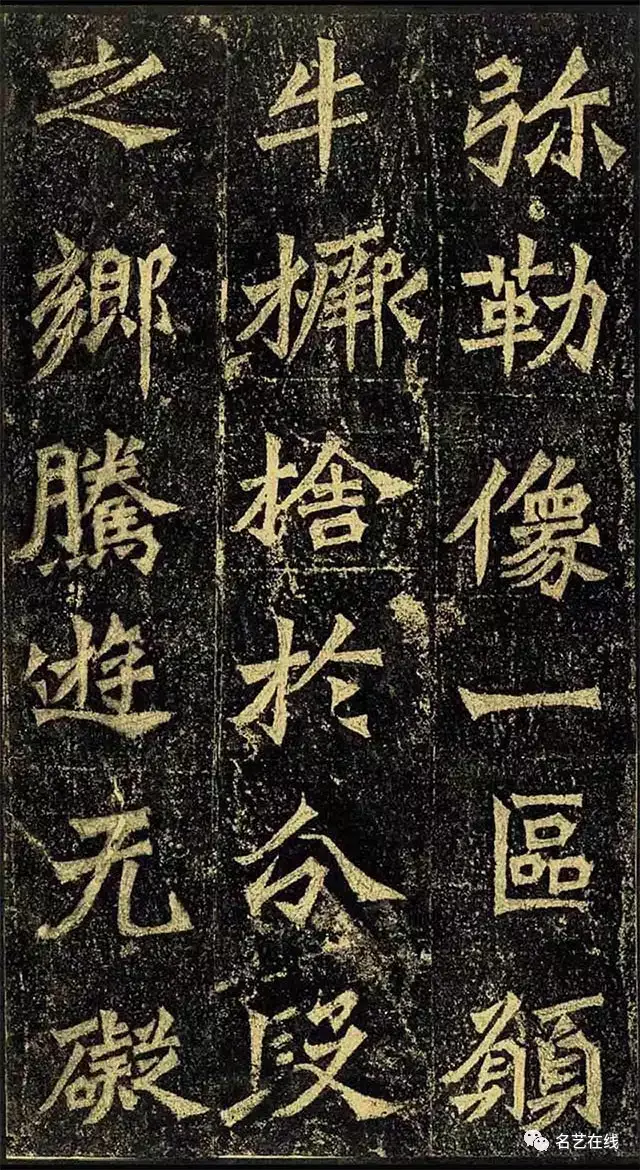 弥勒像一區願
牛橛捨於分段
之鄉騰遊无礙
名艺在线